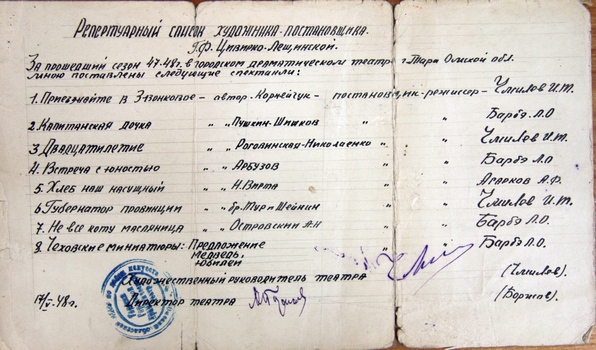 Репертуарный список художника-постановщика.
Г.Ф. Цивирко-Лещинской.
За прошедший сезон 47-48г. в городском драматическом театре г. Тары Омской обл.
мною поставлены следующие спектакли:
1. Приезжайте в Звонковое - автор - Корнейчук - постановщик-режиссер - Чмилов И.Т.
2. Капитанская дочка „ „ Пушкин-Шишков „ „ Барбэ Л.О
3. Двадцатилетие „ „ Роговинская-Николаенко „ „ Чмилев И.Т.
4. Встреча с юностью „ „ Арбузов „ „ Барбэ Л.О
5. Хлеб наш насущный „ „ Н. Вирта „ „ Агарков А.Ф.
6. Губернатор провинции „ „ бр. Тур и Шейнин „ „ Чмилов И.Т.
7. Не все коту масляница „ „ Островский А.Н „ „ Барбэ Л.О.
8. Чеховские миниатюры: Предложение „ „ Барбэ Л.О.
Медведь,
Юбилей
Художественный руководитель театра (Чмилов).
17/V-48г. Директор театра (Боршов).